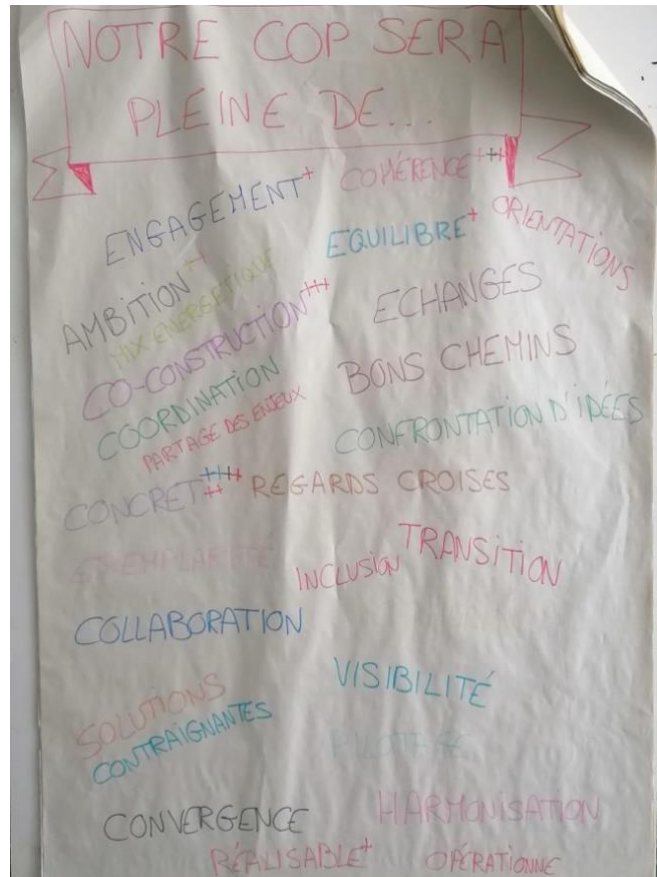 NOTRE COP SERA
PLEINE DE...
ENGAGEMENT+
COHÉRENCE+++
EQUILIBRE+
ORIENTATIONS
AMBITION+
MIX ENERGETIQUE
ECHANGES
CO-CONSTRUCTION+++
BONS CHEMINS
COORDINATION
PARTAGE DES ENJEUX
CONFRONTATION D'IDÉES
CONCRET++++++
REGARDS CROISES
EXEMPLARITÉ
INCLUSION
TRANSITION
COLLABORATION
VISIBILITÉ
SOLUTIONS
CONTRAIGNANTES
PILOTAGE
CONVERGENCE
HARMONISATION
RÉALISABLE+
OPÉRATIONNE